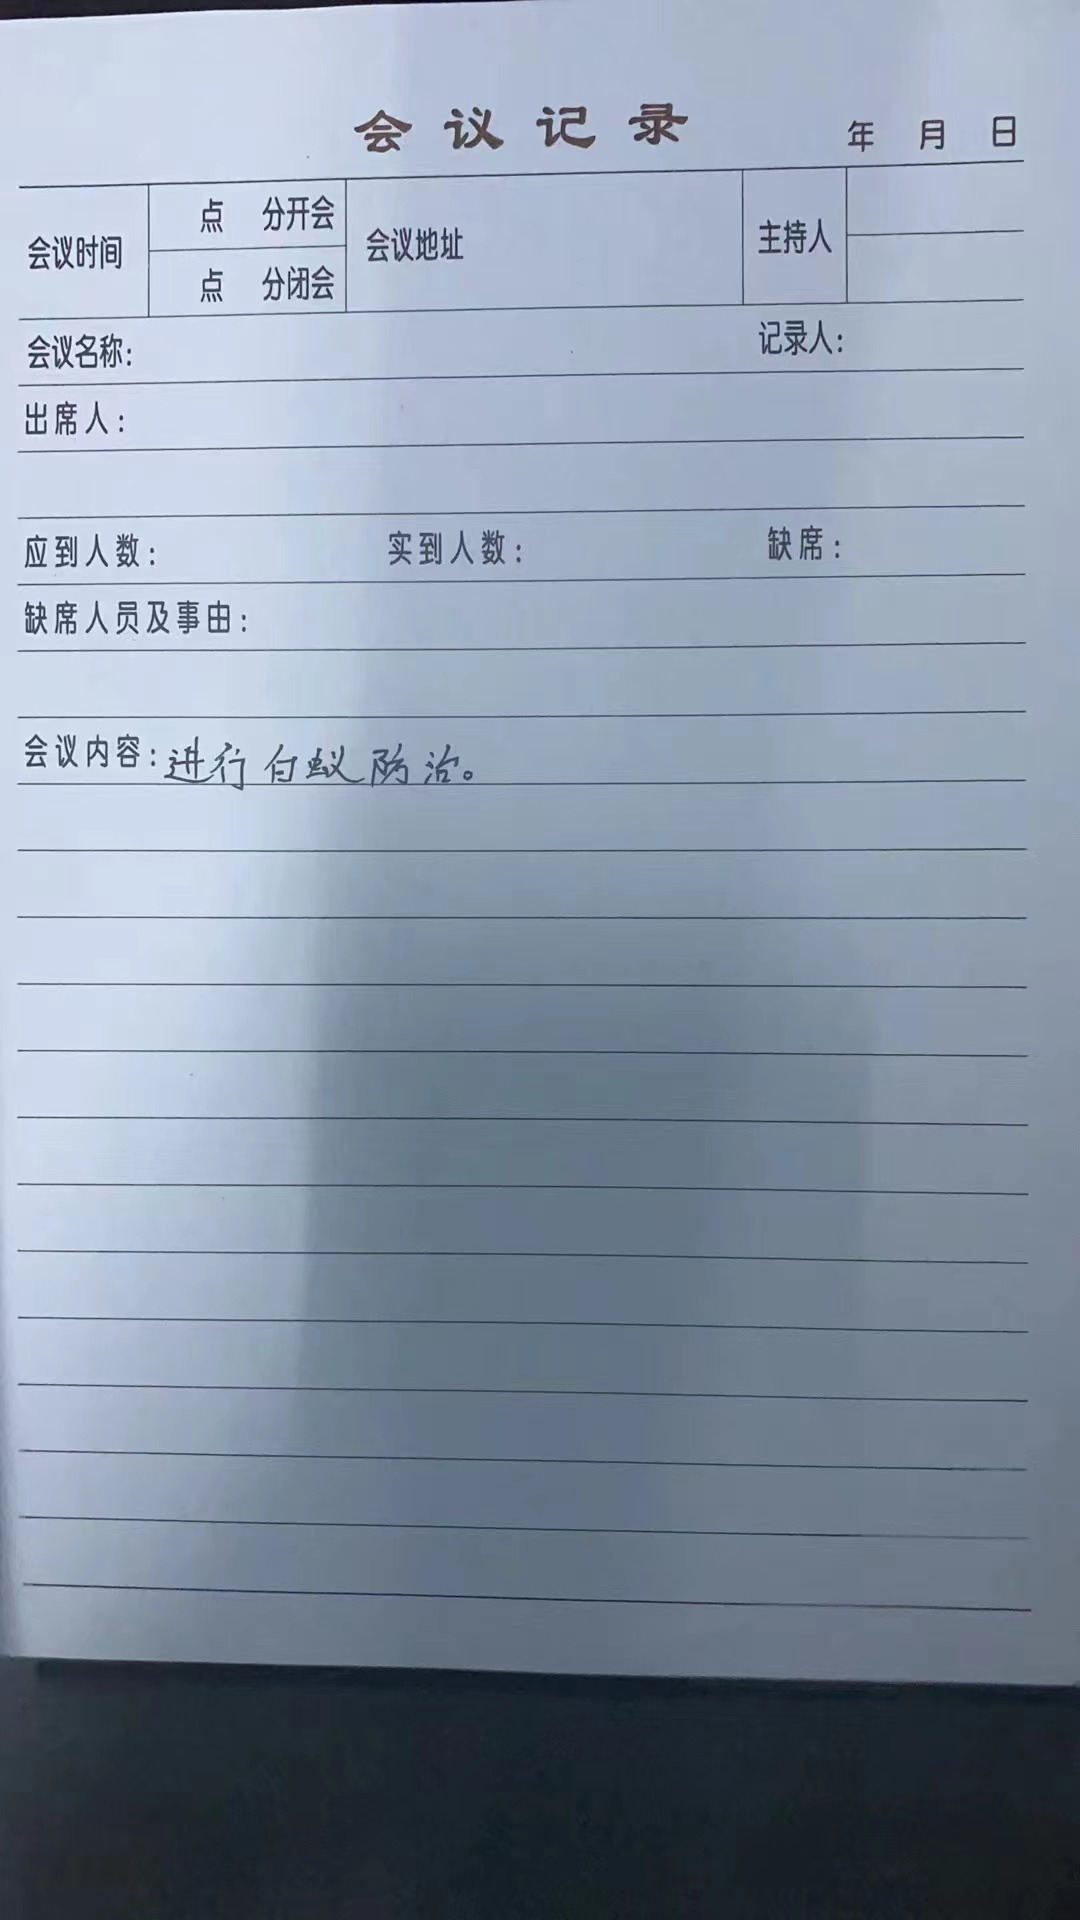 会议记录
年 月 日
会议时间 点 分开会 会议地址 主持人
点 分闭会
会议名称: 记录人:
出席人:
应到人数: 实到人数: 缺席:
缺席人员及事由:
会议内容:进行白蚁防治。